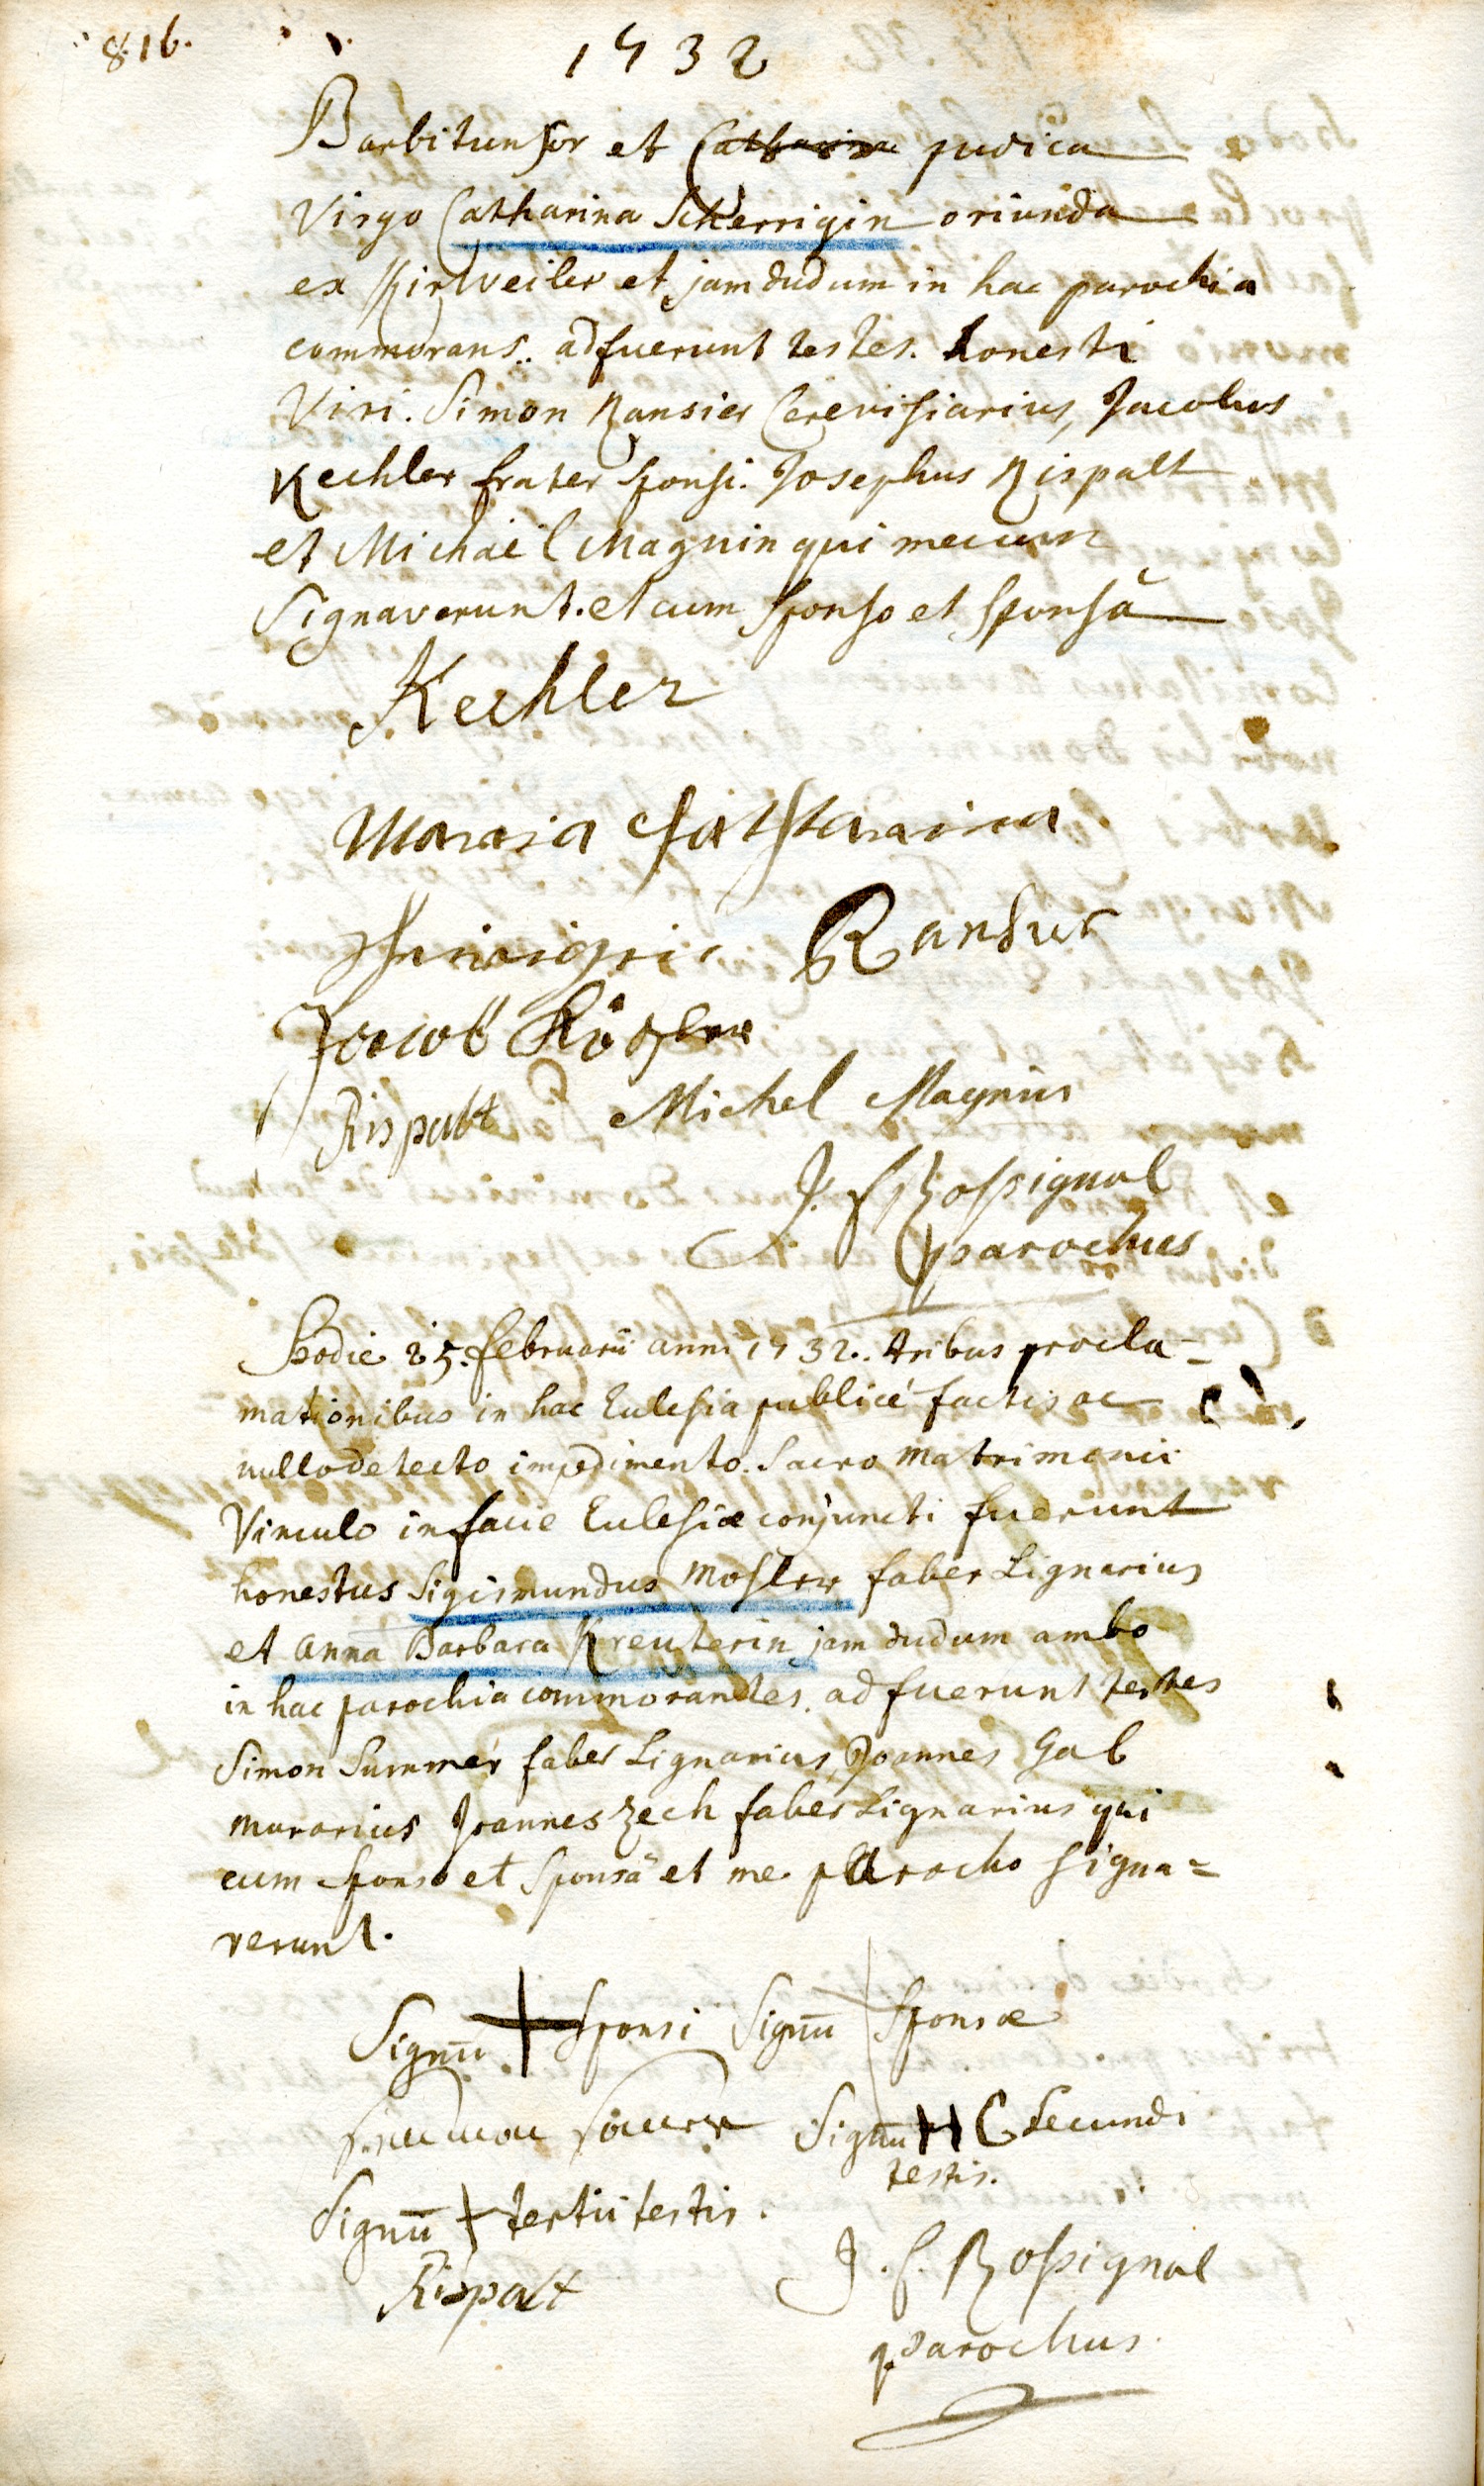 816.
1732
Barbitunsor et Catharina pudica
Virgo Catharina Scherrigin oriunda
ex Kirweiler et jam dudum in hac parochia
commorans. adfuerunt testes. honesti
Viri. Simon Ransier Cerevisiarius, Jacobus
Kechler frater sponsi. Josephus Rispalt
et Michaël Magnin qui mecum
Signaverunt. et cum sponso et sponsâ
Kechler
Maria Catharina
Ransier
Jacob
Rispalt Michel Magnin
J. f Rossignol
parochus
Hodie 25. februarii anni 1732. tribus procla-
mationibus in hac Eulesia publicé factis ac
nullo detecto impedimento. Sacro matrimonii
Vinculo in facie Eulesiæ conjuncti fuerunt
honestus Sigismundus Mosler faber Lignarius
et anna Barbara Kreuterin jam dudum ambo
in hac parochia commorantes. adfuerunt testes
Simon Summer faber Lignarius, Joannes Gab
murarius Joannes Zech faber Lignarius qui
cum sponso et sponsâ et me parocho signa=
verunt.
Signū + sponsi Signū + sponsæ
Signū H G secundi
testis.
Signū + tertii testis.
Rispalt
J. f. Rossignol
parochus.